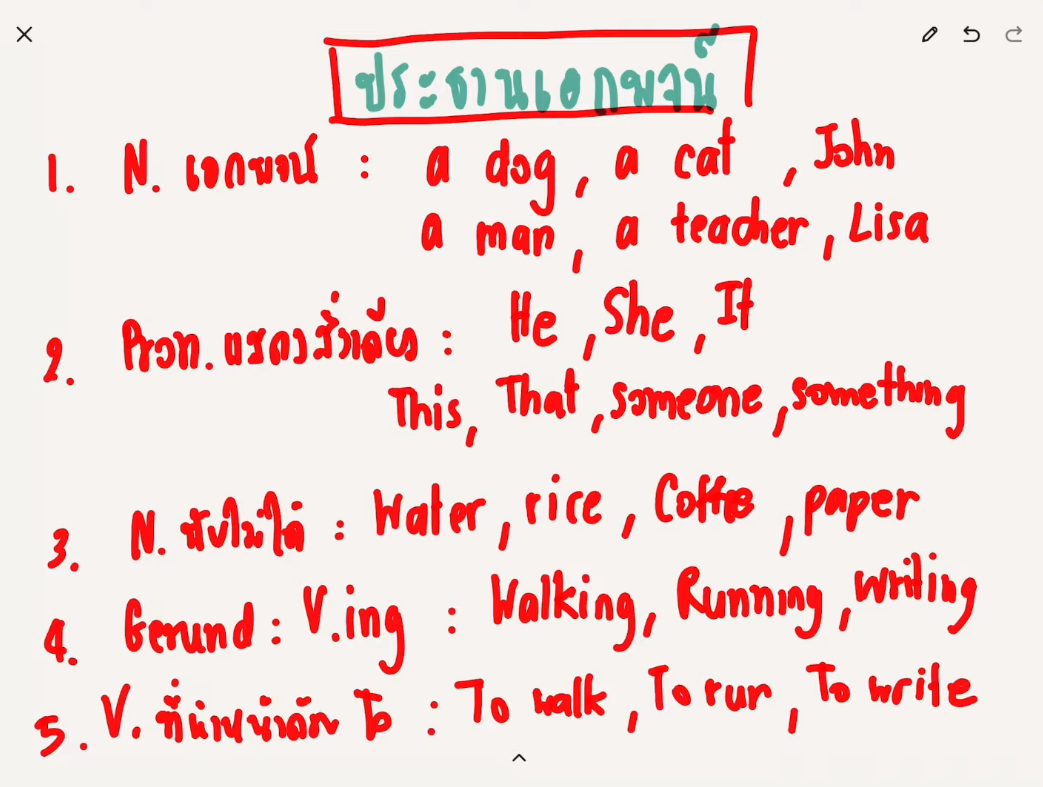 ประธานเอกพจน์
1. N. เอกพจน์ : a dog, a cat, John
a man, a teacher, Lisa
2. Pron. แสดงสิ่งเดียว : He, She, It
This, That, someone, something
3. N. นับไม่ได้ : Water, rice, Coffee, paper
4. Gerund : V.ing : Walking, Running, Writing
5. V. ที่นำหน้าด้วย To : To walk, To run, To write